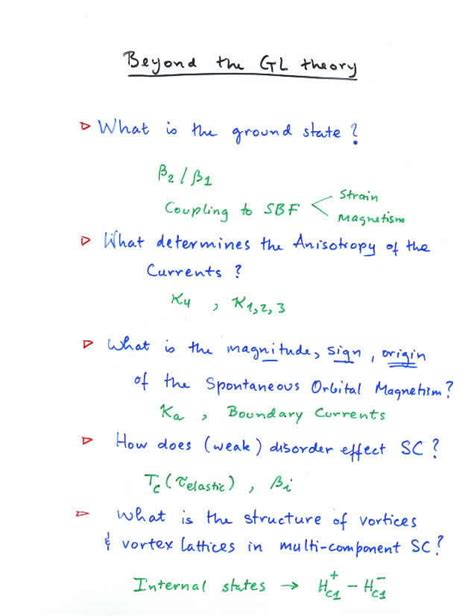 Beyond the GL theory
▷ What is the ground state ?
β₂ / β₁
Coupling to SBF < Strain
Magnetism
▷ What determines the Anisotropy of the
Currents ?
κ₄ , κ₁,₂,₃
▷ What is the magnitude, sign, origin
of the Spontaneous Orbital Magnetism?
κₐ , Boundary Currents
▷ How does (weak) disorder effect SC ?
T_c (τ_elastic) , β_i
▷ What is the structure of vortices
& vortex lattices in multi-component SC?
Internal states → H⁺_c1 − H⁻_c1